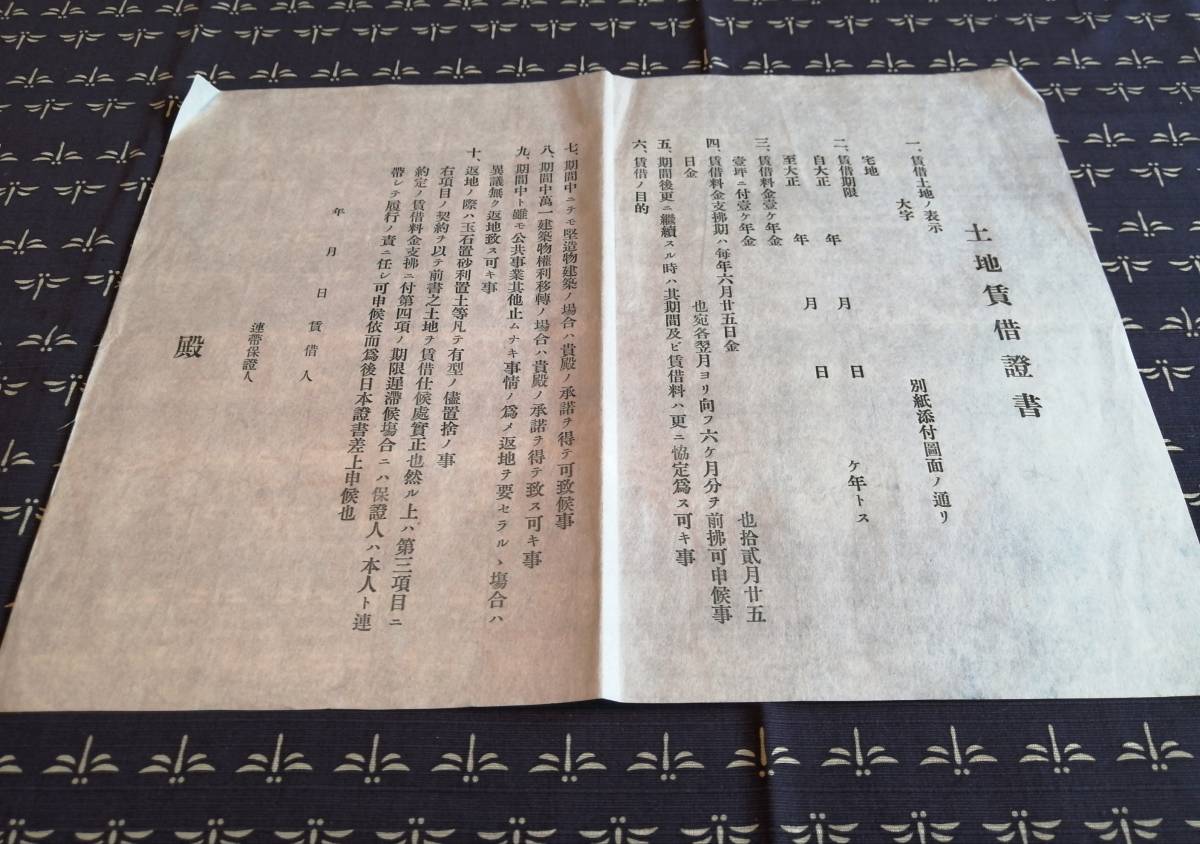 土地賃借證書
一、賃借土地ノ表示
大字 別紙添付圖面ノ通リ
宅地
二、賃借期限 年 月 日 ケ年トス
自大正 年 月 日
至大正
三、賃借料金壹ケ年金
壹坪ニ付壹ケ年金 也拾貳月廿五
四、賃借料金支拂期ハ毎年六月廿五日金
日金 也宛各翌月ヨリ向フ六ケ月分ヲ前拂可申候事
五、期間後更ニ繼續スル時ハ其期間及ビ賃借料ハ更ニ恊定爲ス可キ事
六、賃借ノ目的
七、期間中ニテモ堅造物建築ノ場合ハ貴殿ノ承諾ヲ得テ可致候事
八、期間中萬一建築物權利移轉ノ場合ハ貴殿ノ承諾ヲ得テ致ス可キ事
九、期間中ト雖モ公共事業其他止ムナキ事情ノ爲メ返地ヲ要セラルヽ塲合ハ
異議無ク返地致ス可キ事
十、返地ノ際ハ玉石置砂利置土等凡テ有型ノ儘置捨ノ事
右項目ノ契約ヲ以テ前書之土地ヲ賃借仕候處實正也然ル上ハ第三項目ニ
約定ノ賃借料金支拂ニ付第四項ノ期限遲滯候塲合ニハ保證人ハ本人ト連
帶シテ履行ノ責ニ任シ可申候依而爲後日本證書差上申候也
年 月 日
賃借人
連帶保證人
殿